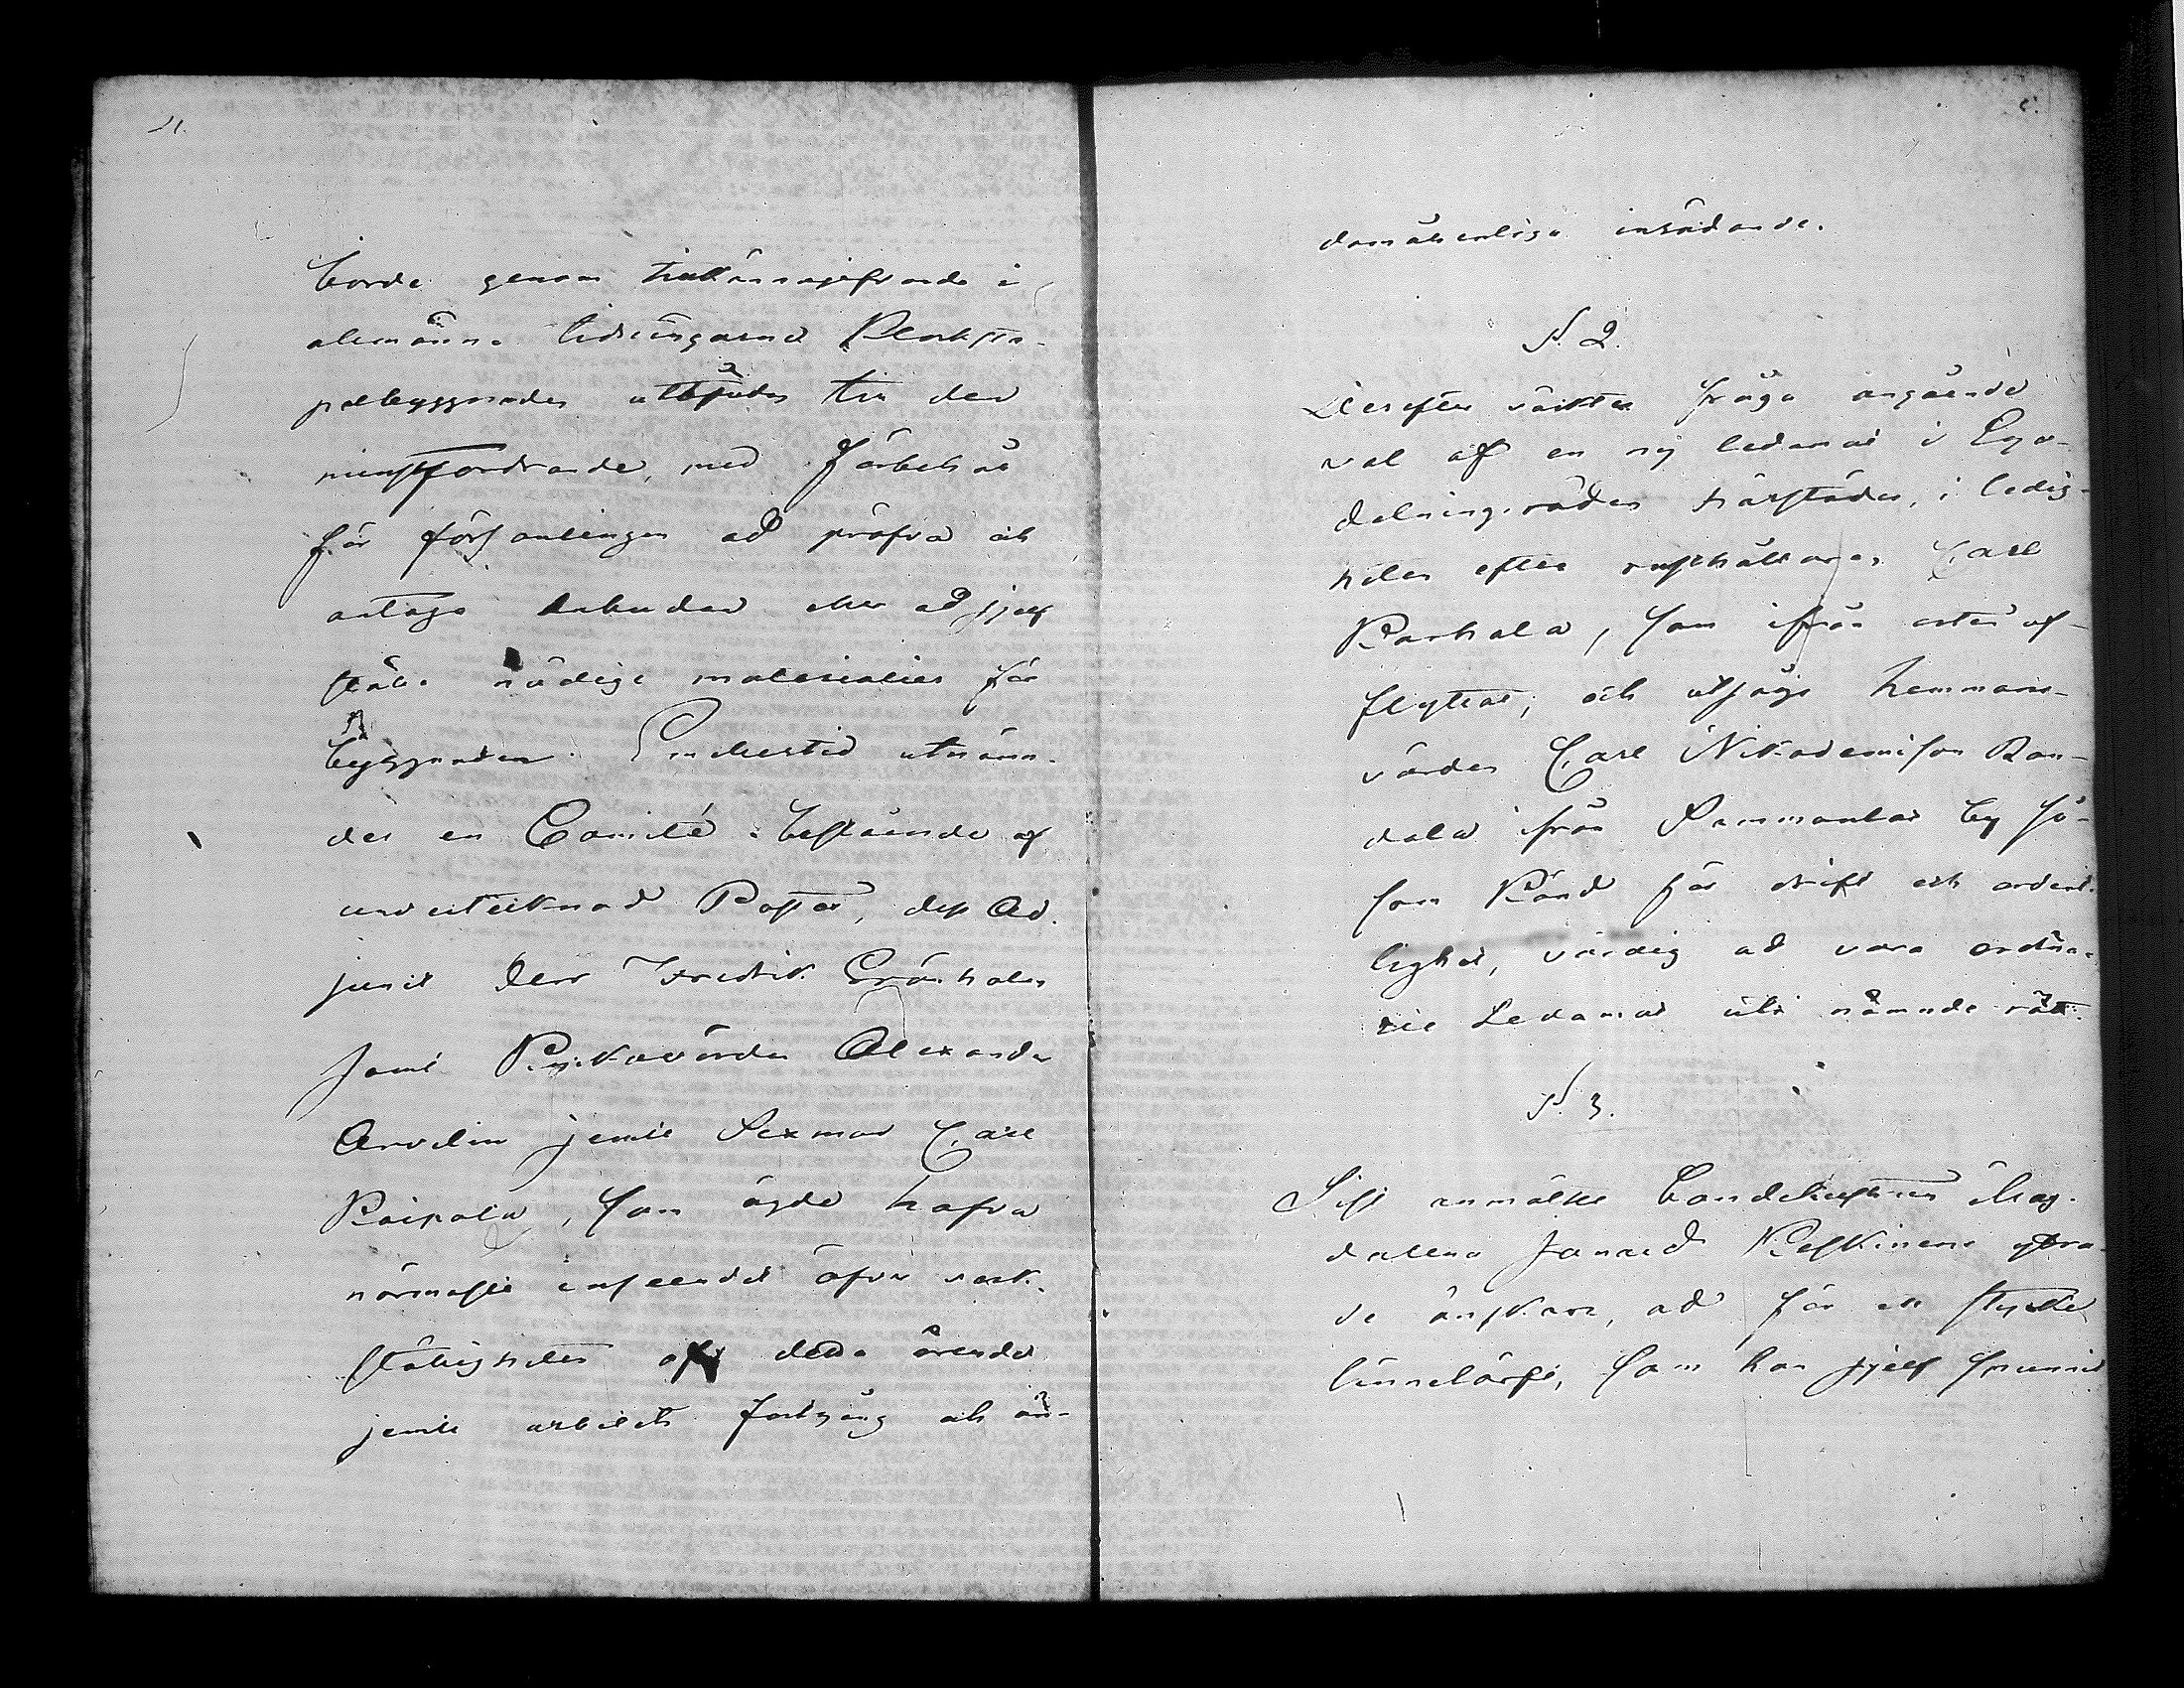 borde genom tillkännagifvande i
almänna tidningarna Klocksta-
pelbyggnaden utbjudas till den
minstfordrande, med förbehåll
för församlingen ad pröfva och
antaga anbudet eller ad sjelf
ställa nödige materialier för
byggnaden. Emedlertid utnämn-
des en Comité bestående af
undertecknad Pastor, dess Ad-
junct Herr Fredrik Grönholm
samt Kyrkovärden Alexander
Arvelin jemte Sexman Carl
Raipala, som ägde hafva
närmaste inseendet öfver verk-
ställigheten af detta ärende
jemte arbetets fortgång och än-
damåhenliga inrådande.
§. 2.
Derefter väcktes fråga angående
val af en ny ledamot i Ego-
delningsrätten härstädes, i ledig-
heten efter rusthållaren Carl
Karhala, som ifrån orten af-
flyttat; och utsågs hemmans-
värden Carl Nikodemisson Ran-
dala ifrån Sammonlax by så-
som Känd för drift och ordent-
lighet, värdig ad vara ordina-
rie Ledamot uti nämnde rätt.
§. 3.
Sist anmälte Bondehustrun Mag-
dalena Jonaed. Keskinens yttra-
de önskan, ad för ett stycke
linnelärft, som hon sjelf spunnit